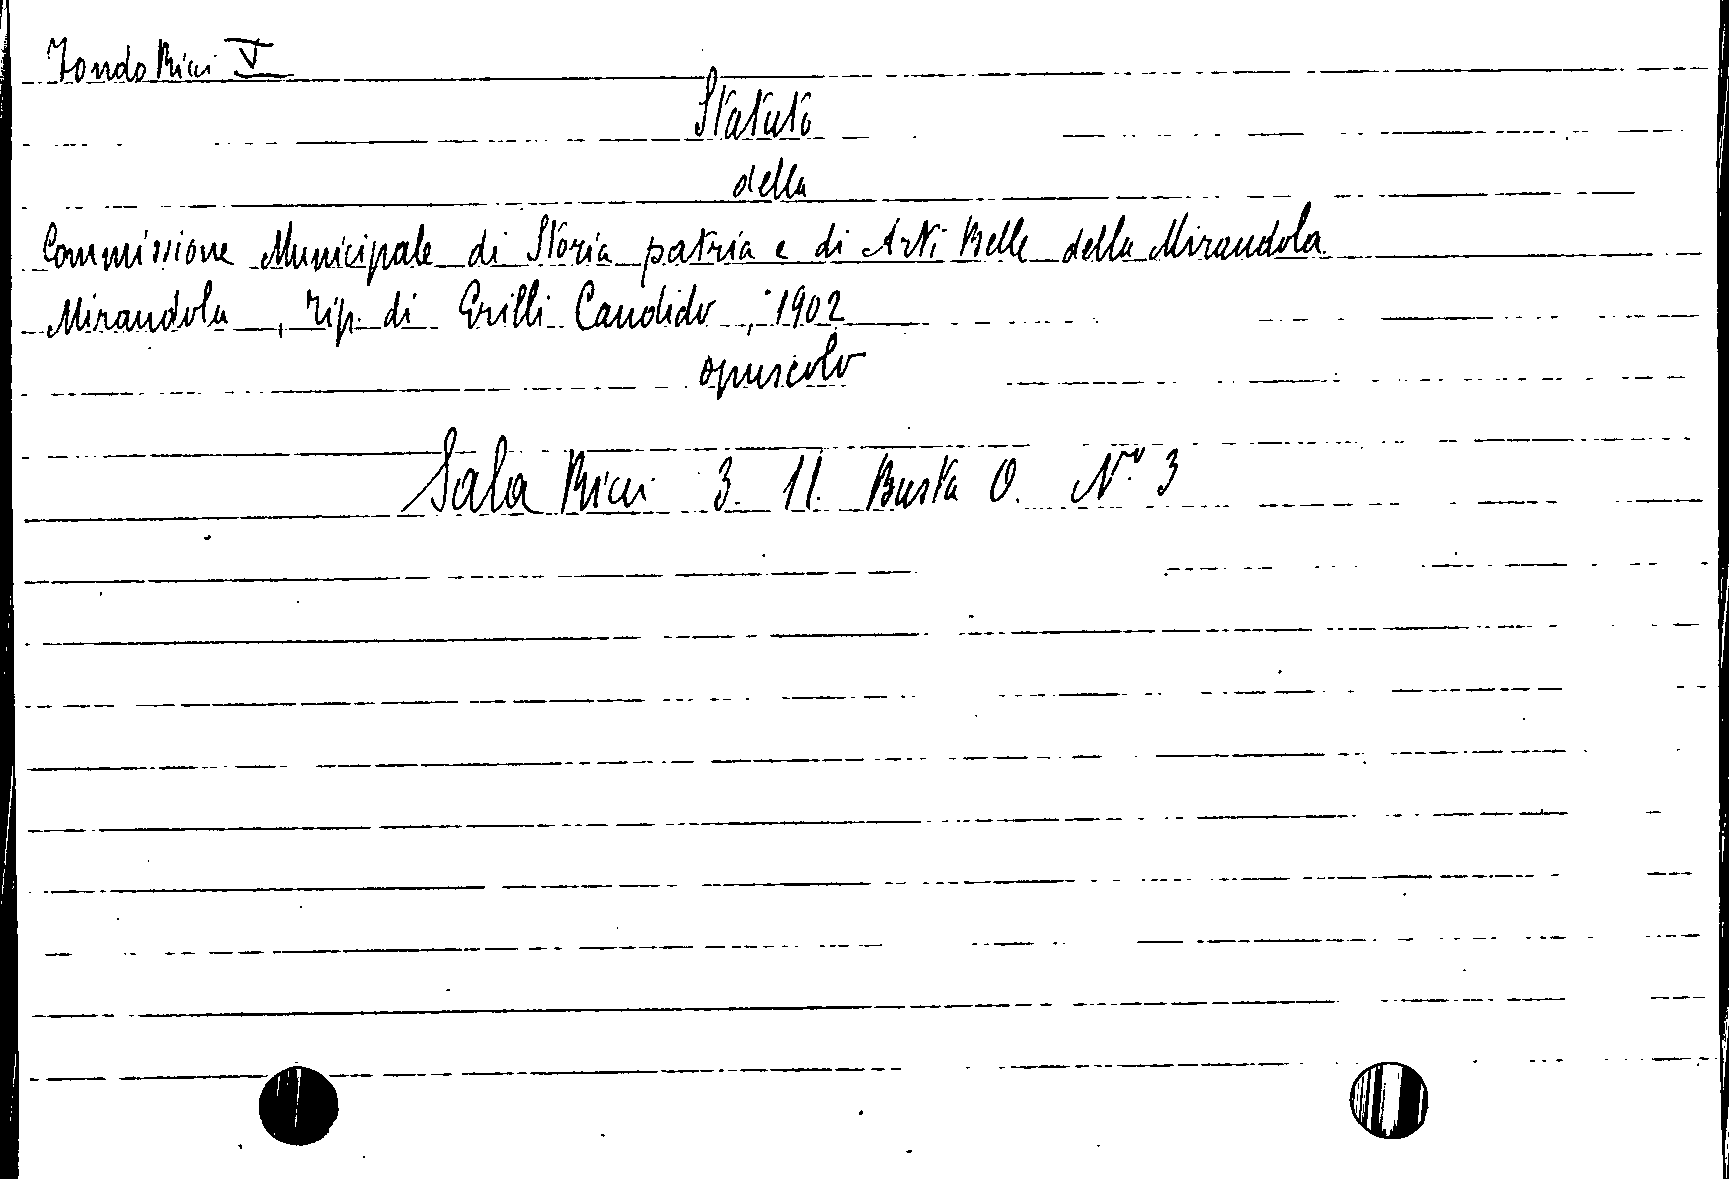 Fondo Ricci V
Statuto
della
Commissione Municipale di Storia patria e di Arti Belle della Mirandola
Mirandola, Tip. di Grilli Candido, 1902
opuscolo
Sala Ricci 3. 11. Busta O. N.º 3